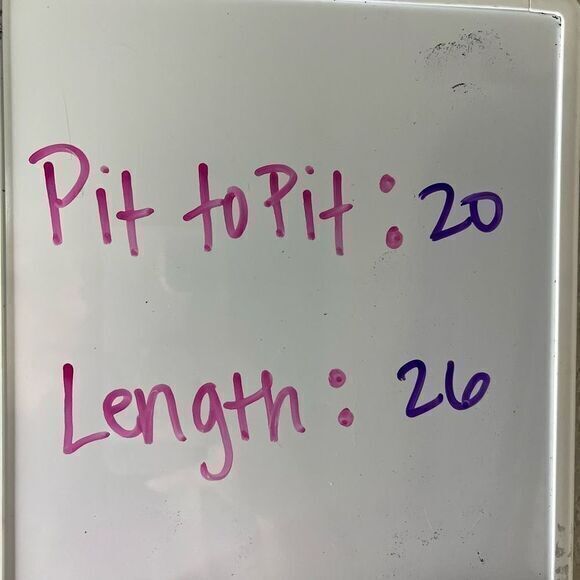 Pit to Pit: 20
Length: 26